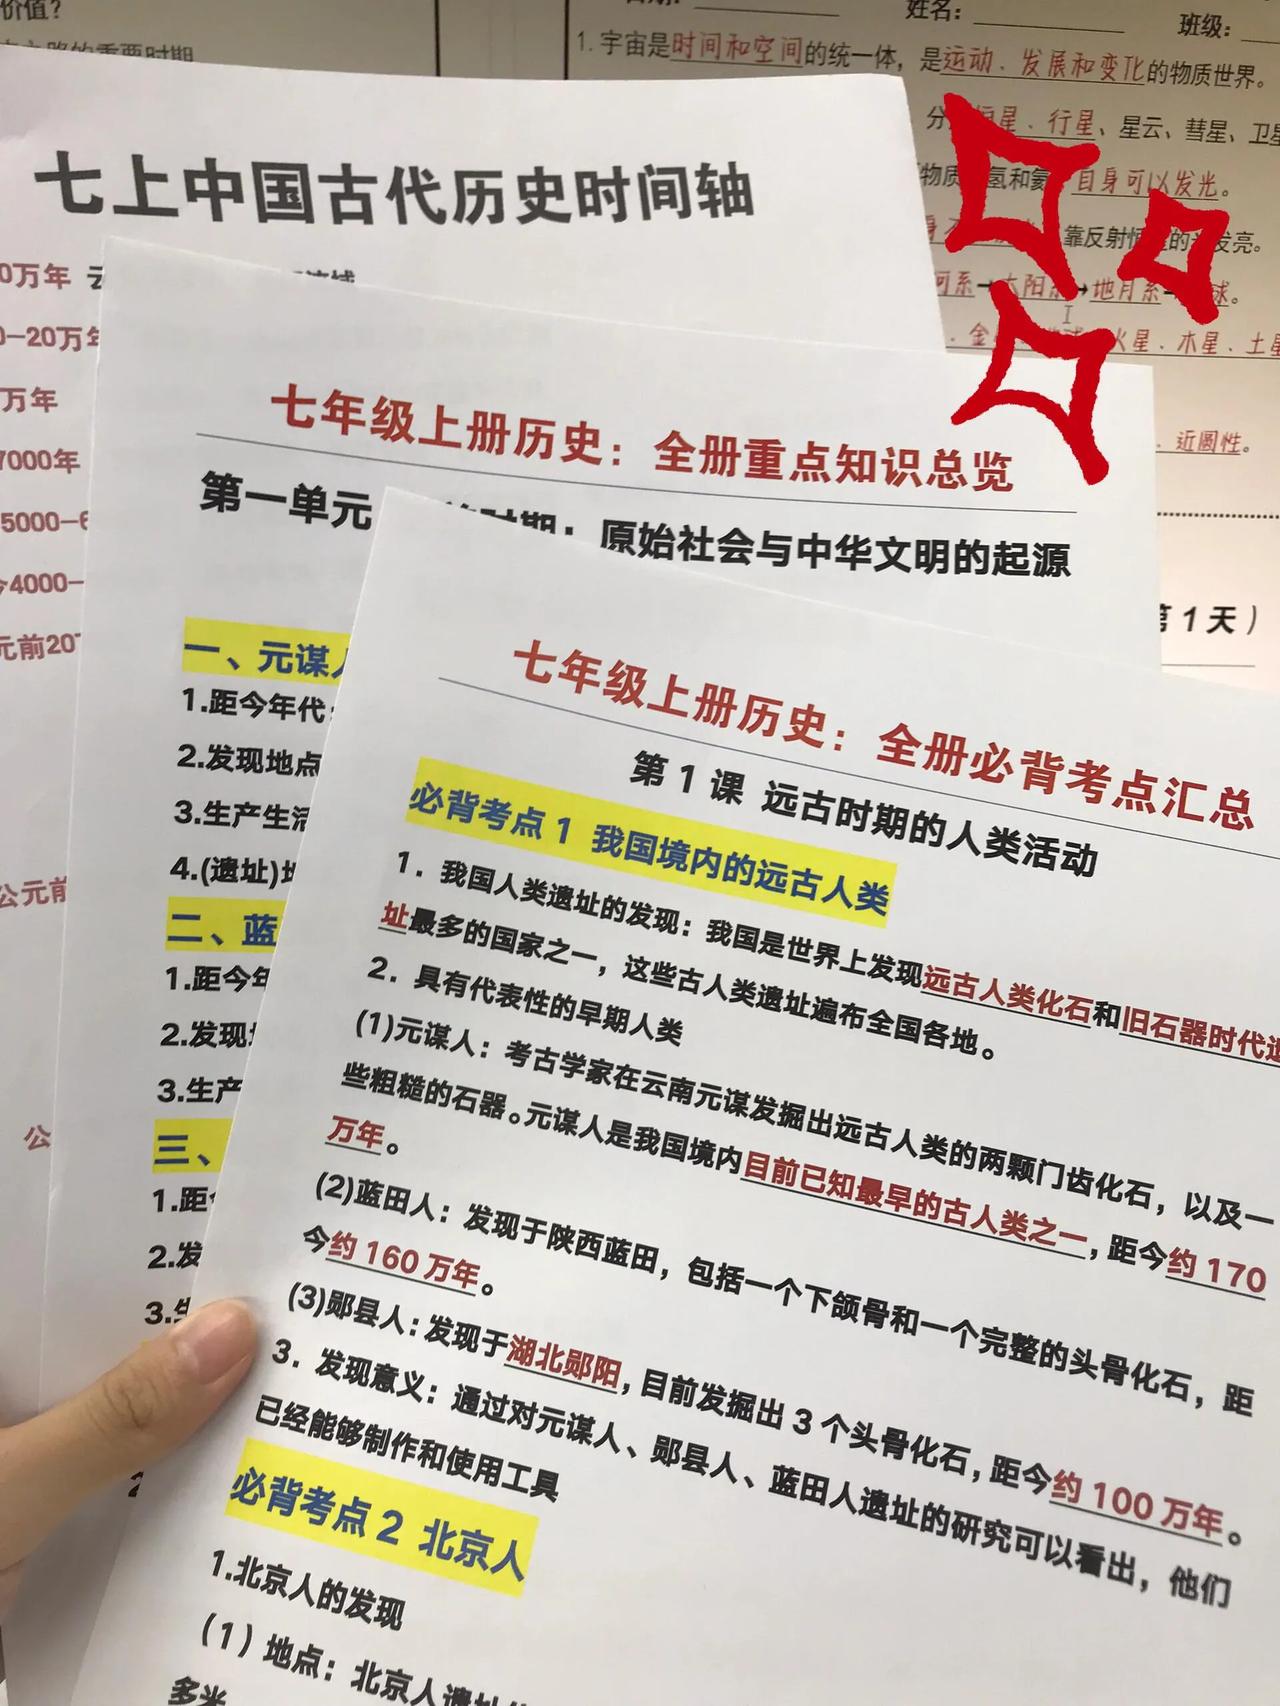 价值?
的重要时期
姓名:
班级:
1.宇宙是时间和空间的统一体，是运动、发展和变化的物质世界。
恒星、行星、星云、彗星、卫星
物质 氢和氦 自身可以发光。
靠反射恒 的 发亮。
河系→太阳系→地月系→ 球。
金 地球 火星、木星、土星
、近圆性。
第1天）
七上中国古代历史时间轴
0万年 云
0-20万年
万年
7000年
5000-6
今4000-
元前207
公元前
公
七年级上册历史：全册重点知识总览
第一单元 时期：原始社会与中华文明的起源
一、元谋人
1.距今年代:
2.发现地点
3.生产生活
4.(遗址)地
二、蓝
1.距今年
2.发现地
3.生产
三、
1.距今
2.发
3.生
2
七年级上册历史：全册必背考点汇总
第1课 远古时期的人类活动
必背考点1 我国境内的远古人类
1. 我国人类遗址的发现：我国是世界上发现远古人类化石和旧石器时代遗
址最多的国家之一，这些古人类遗址遍布全国各地。
2. 具有代表性的早期人类
(1)元谋人：考古学家在云南元谋发掘出远古人类的两颗门齿化石，以及一
些粗糙的石器。元谋人是我国境内目前已知最早的古人类之一，距今约170
万年。
(2)蓝田人：发现于陕西蓝田，包括一个下颌骨和一个完整的头骨化石，距
今约160万年。
(3)郧县人：发现于湖北郧阳，目前发掘出3个头骨化石，距今约100万年。
3. 发现意义：通过对元谋人、郧县人、蓝田人遗址的研究可以看出，他们
已经能够制作和使用工具
必背考点2 北京人
1.北京人的发现
（1）地点：北京人遗址
多米